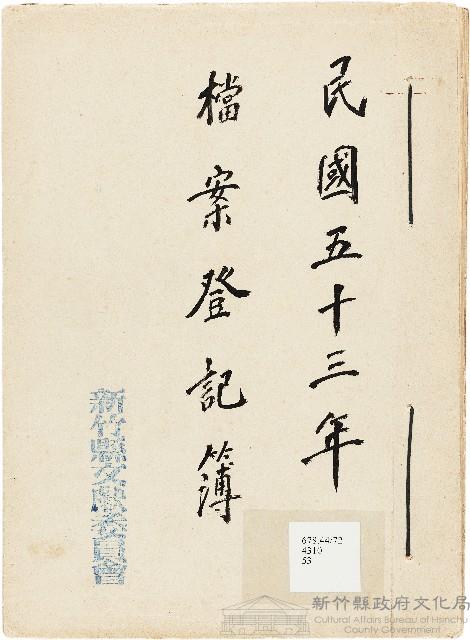 民國五十三年
檔案登記簿
新竹縣文獻委員會
673.44/72
4310
53
新竹縣政府文化局
Cultural Affairs Bureau of Hsinchu
County Government